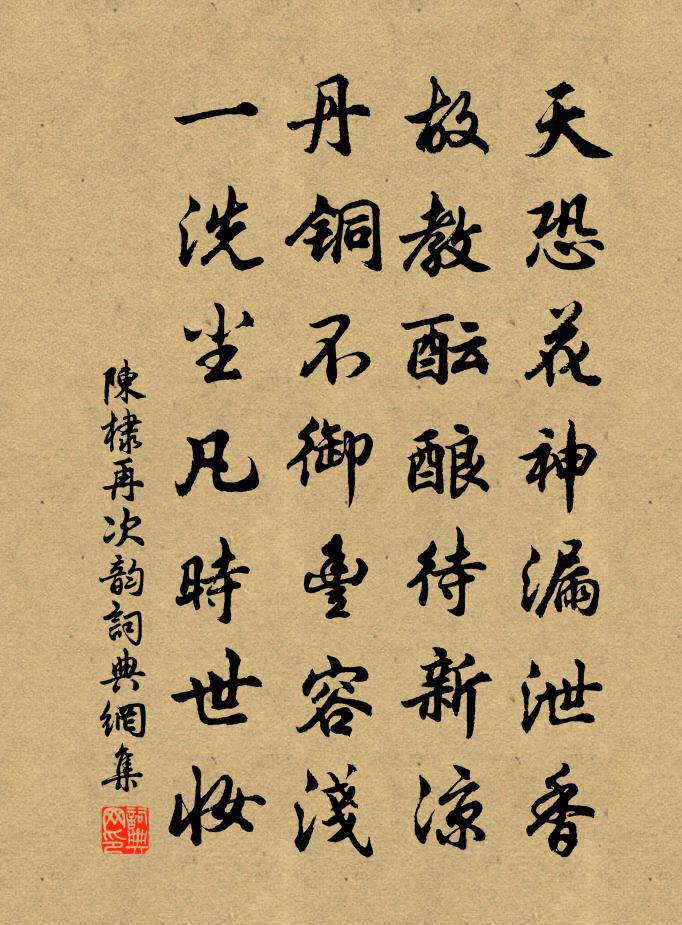 天恐花神漏泄香
故教酝酿待新涼
丹铜不御豊容淺
一洗尘凡時世妆
陳棣再次韵詞典網集
詞典
网印